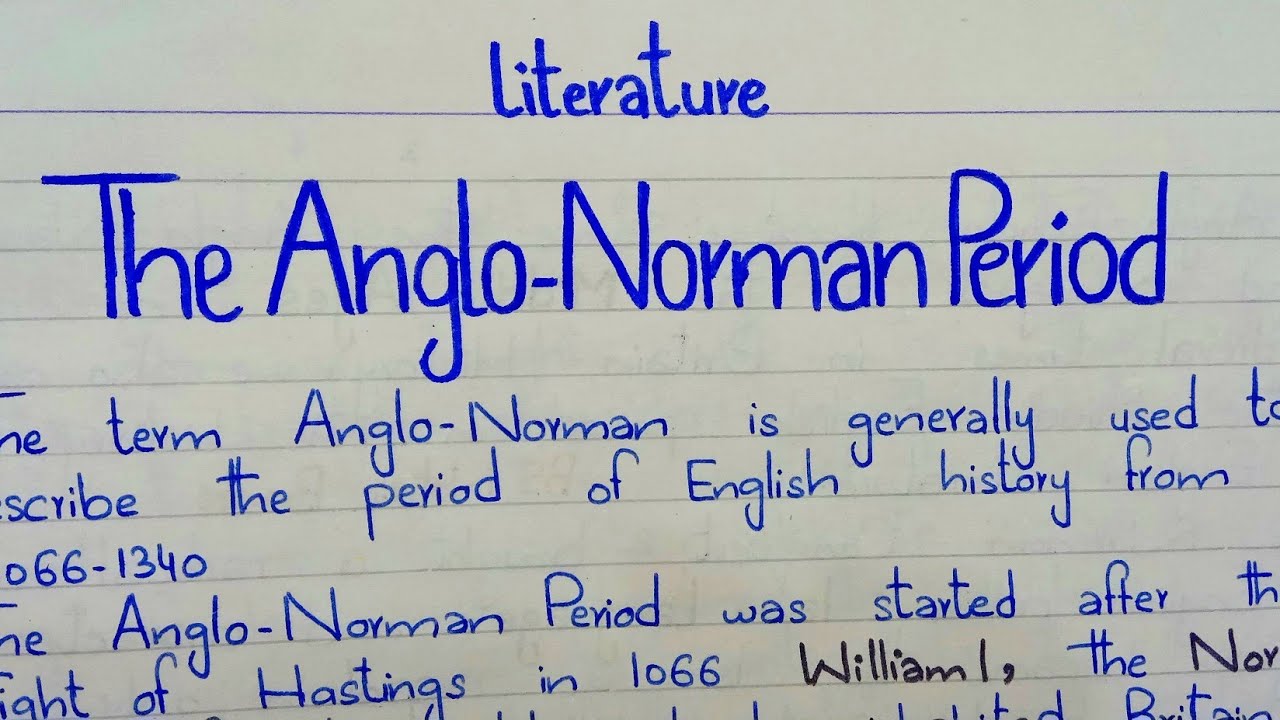 Literature
The Anglo-Norman Period
he term Anglo-Norman is generally used to
scribe the period of English history from
066-1340
he Anglo-Norman Period was started after th
ight of Hastings in 1066 William I, the Nor
Britain